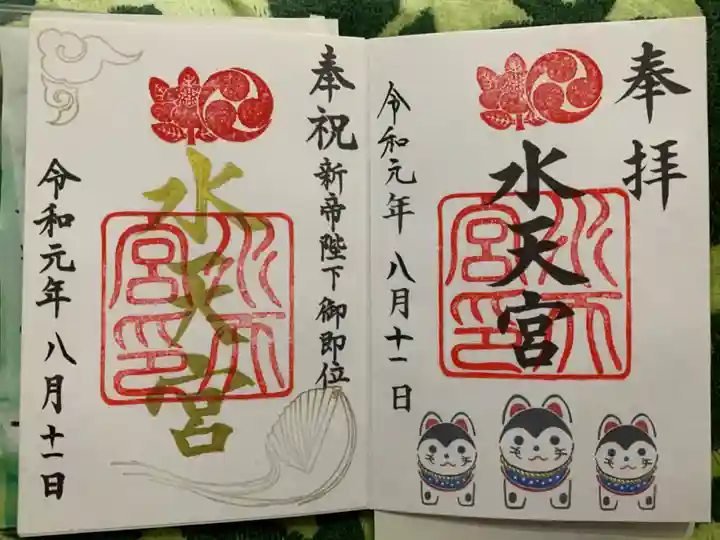 奉拝
水天宮
令和元年 八月十一日
水天宮印
奉祝 新帝陛下御即位
水天宮
令和元年 八月十一日
水天宮印